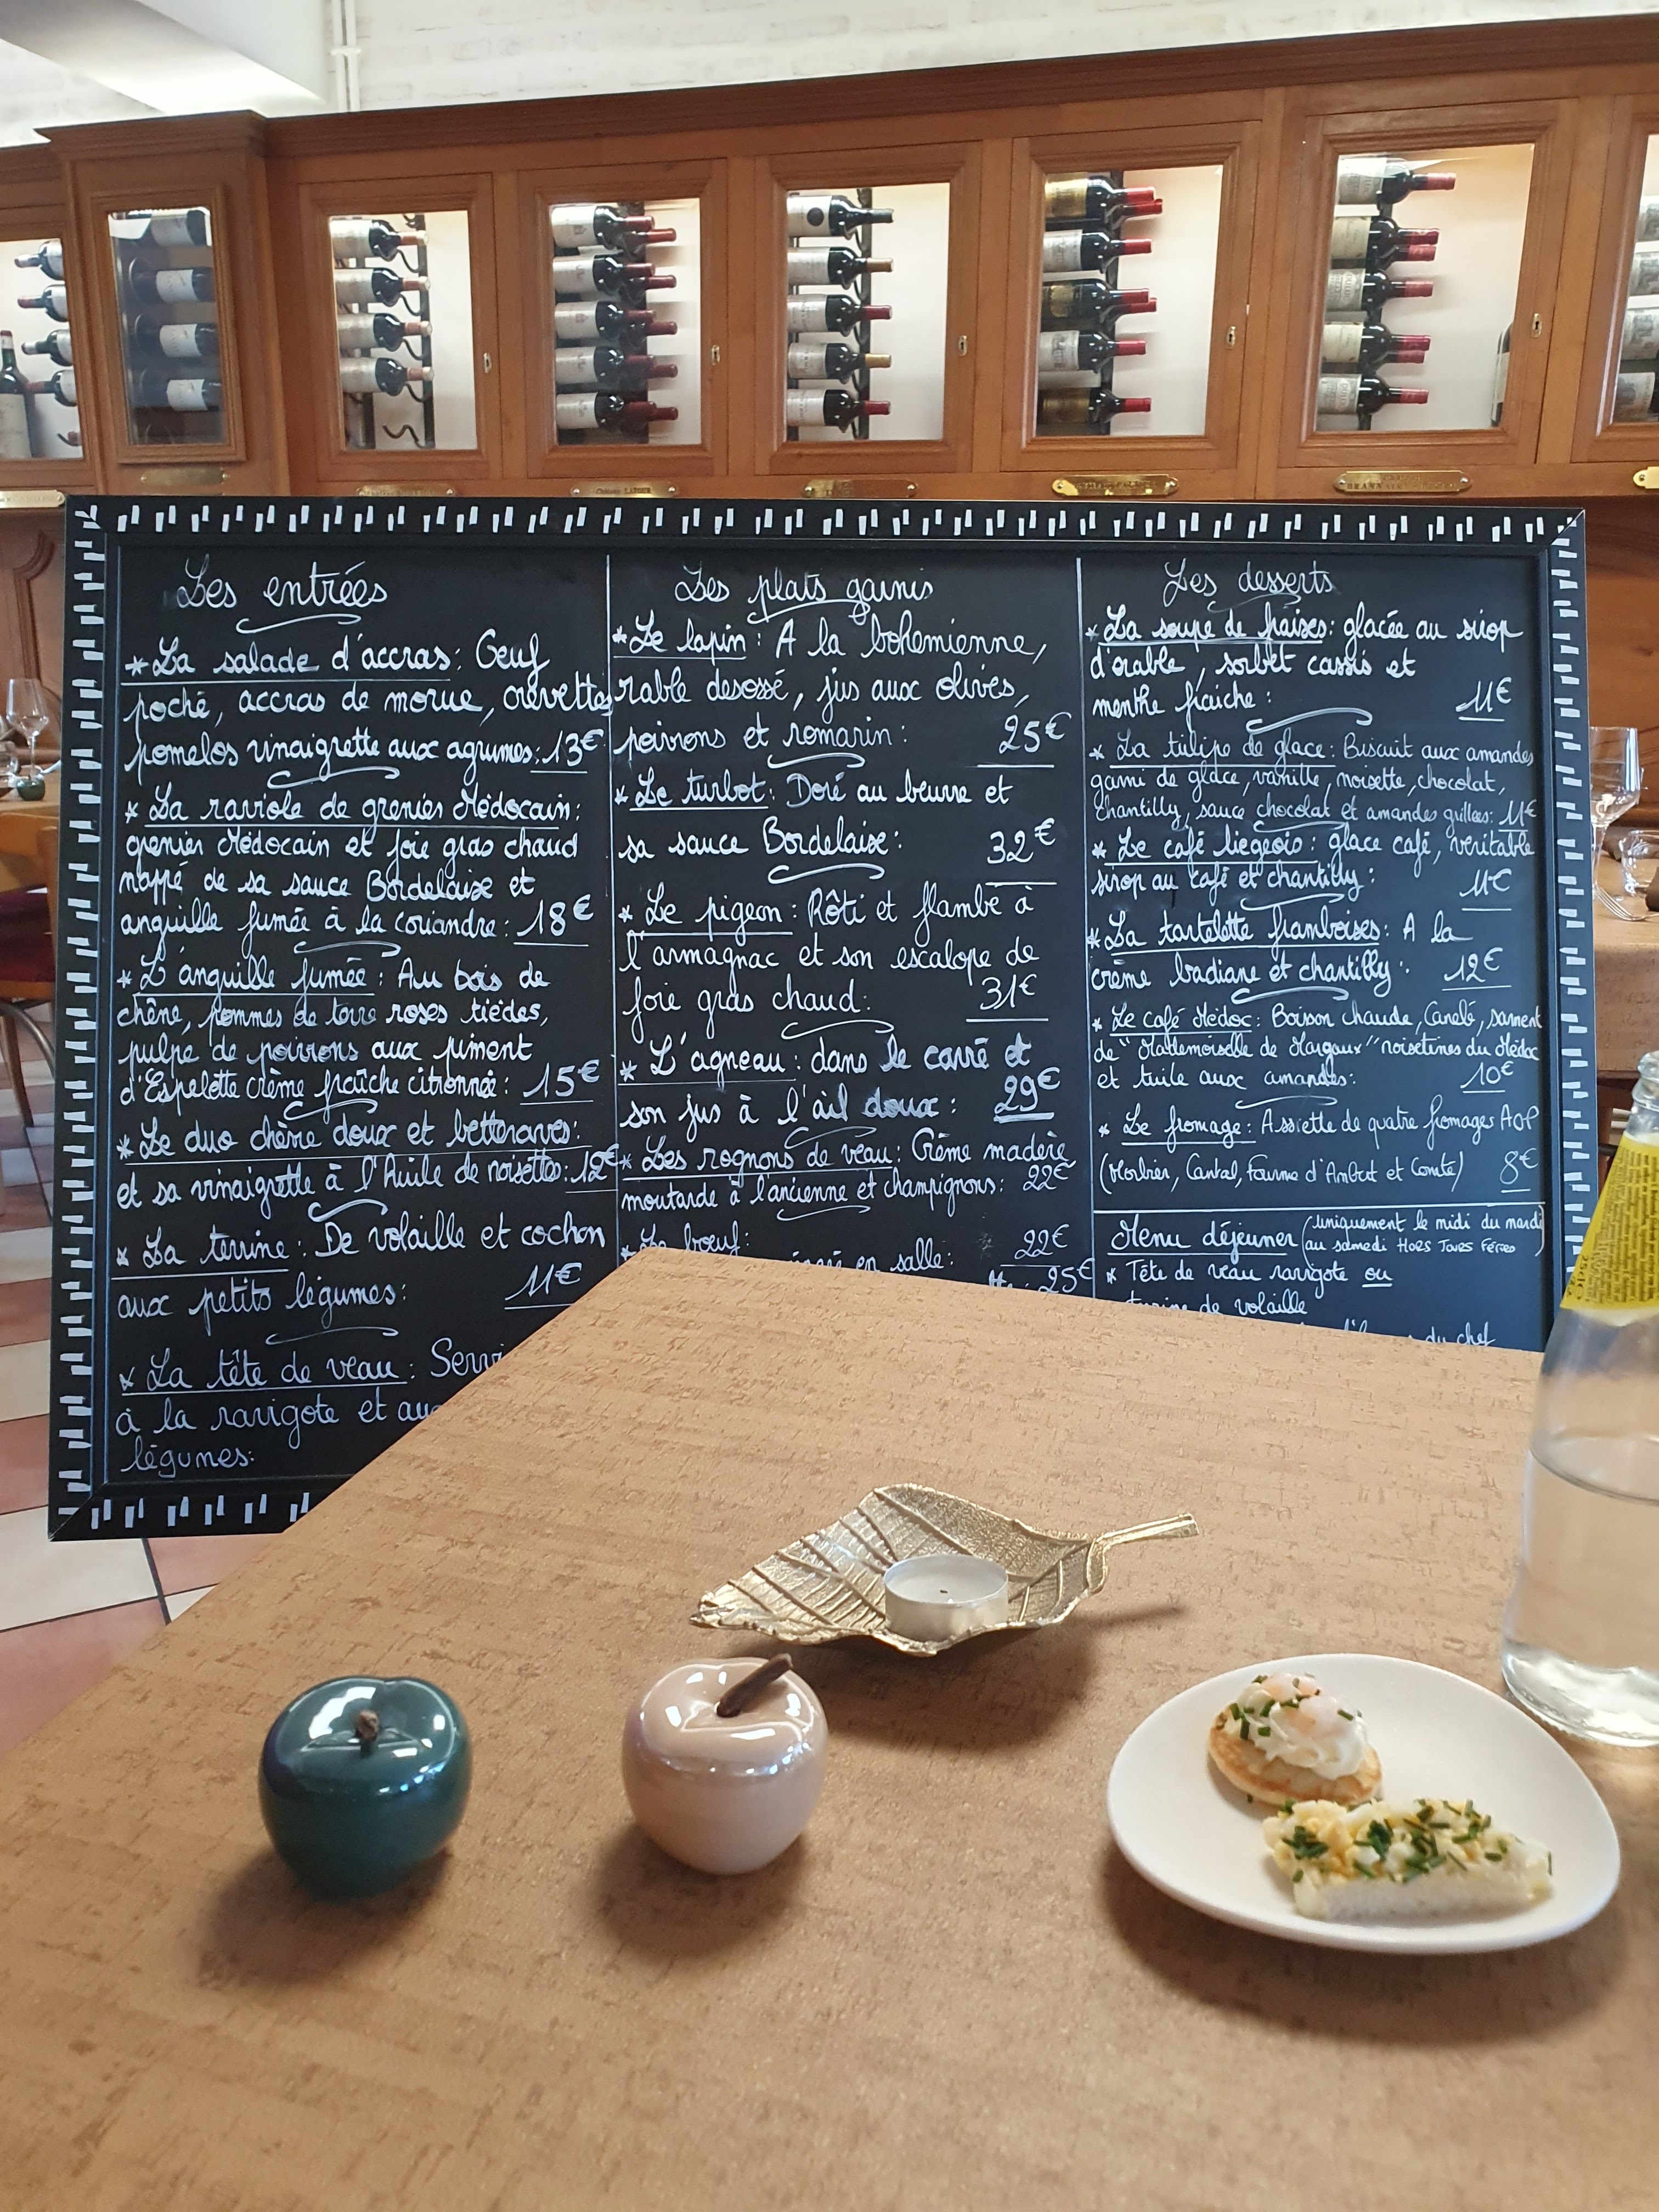 Les entrées
* La salade d'accras: Oeuf
poché, accras de morue, crevettes
pomelos vinaigrette aux agrumes: 13€
* La raviole de grenier Médocain:
grenier Médocain et foie gras chaud
nappé de sa sauce Bordelaise et
anguille fumée à la coriandre: 18€
* L'anguille fumée: Au bois de
chêne, pommes de terre roses tièdes,
pulpe de poivrons aux piment
d'Espelette crème fraîche citronnée: 15€
* Le duo chèvre doux et betteraves:
et sa vinaigrette à l'Huile de noisettes: 12€
* La terrine: De volaille et cochon
aux petits légumes: 11€
* La tête de veau: Servi
à la ravigote et
légumes:
Les plats garnis
* Le lapin: A la bohemienne,
rable desossé, jus aux olives,
poivrons et romarin: 25€
* Le turbot: Doré au beurre et
sa sauce Bordelaise: 32€
* Le pigeon: Rôti et flambé à
l'armagnac et son escalope de
foie gras chaud: 31€
* L'agneau: dans le carré et
son jus à l'ail doux: 29€
* Les rognons de veau: Crème madère
moutarde à l'ancienne et champignons: 22€
* Le bœuf:
en salle: 22€
25€
Les desserts
* La soupe de fraises: glacée au sirop
d'érable, sorbet cassis et
menthe fraiche: 11€
* La tulipe de glace: Biscuit aux amandes
garni de glace, vanille, noisette, chocolat,
chantilly, sauce chocolat et amandes grillées: 11€
* Le café liégeois: glace café, véritable
sirop au café et chantilly: 11€
* La tartelette framboises: A la
crème badiane et chantilly: 12€
* Le café Médoc: Boisson chaude, Canelé, sarment
de "Mademoiselle de Margaux" noisetines du Médoc
et tuile aux amandes: 10€
* Le fromage: Assiette de quatre fromages AOP
(Morbier, Cantal, Fourme d'Ambert et Comté) 8€
Menu déjeuner (uniquement le midi du mardi
au samedi HORS JOURS FÉRIÉS)
* Tête de veau ravigote ou
de volaille
du chef